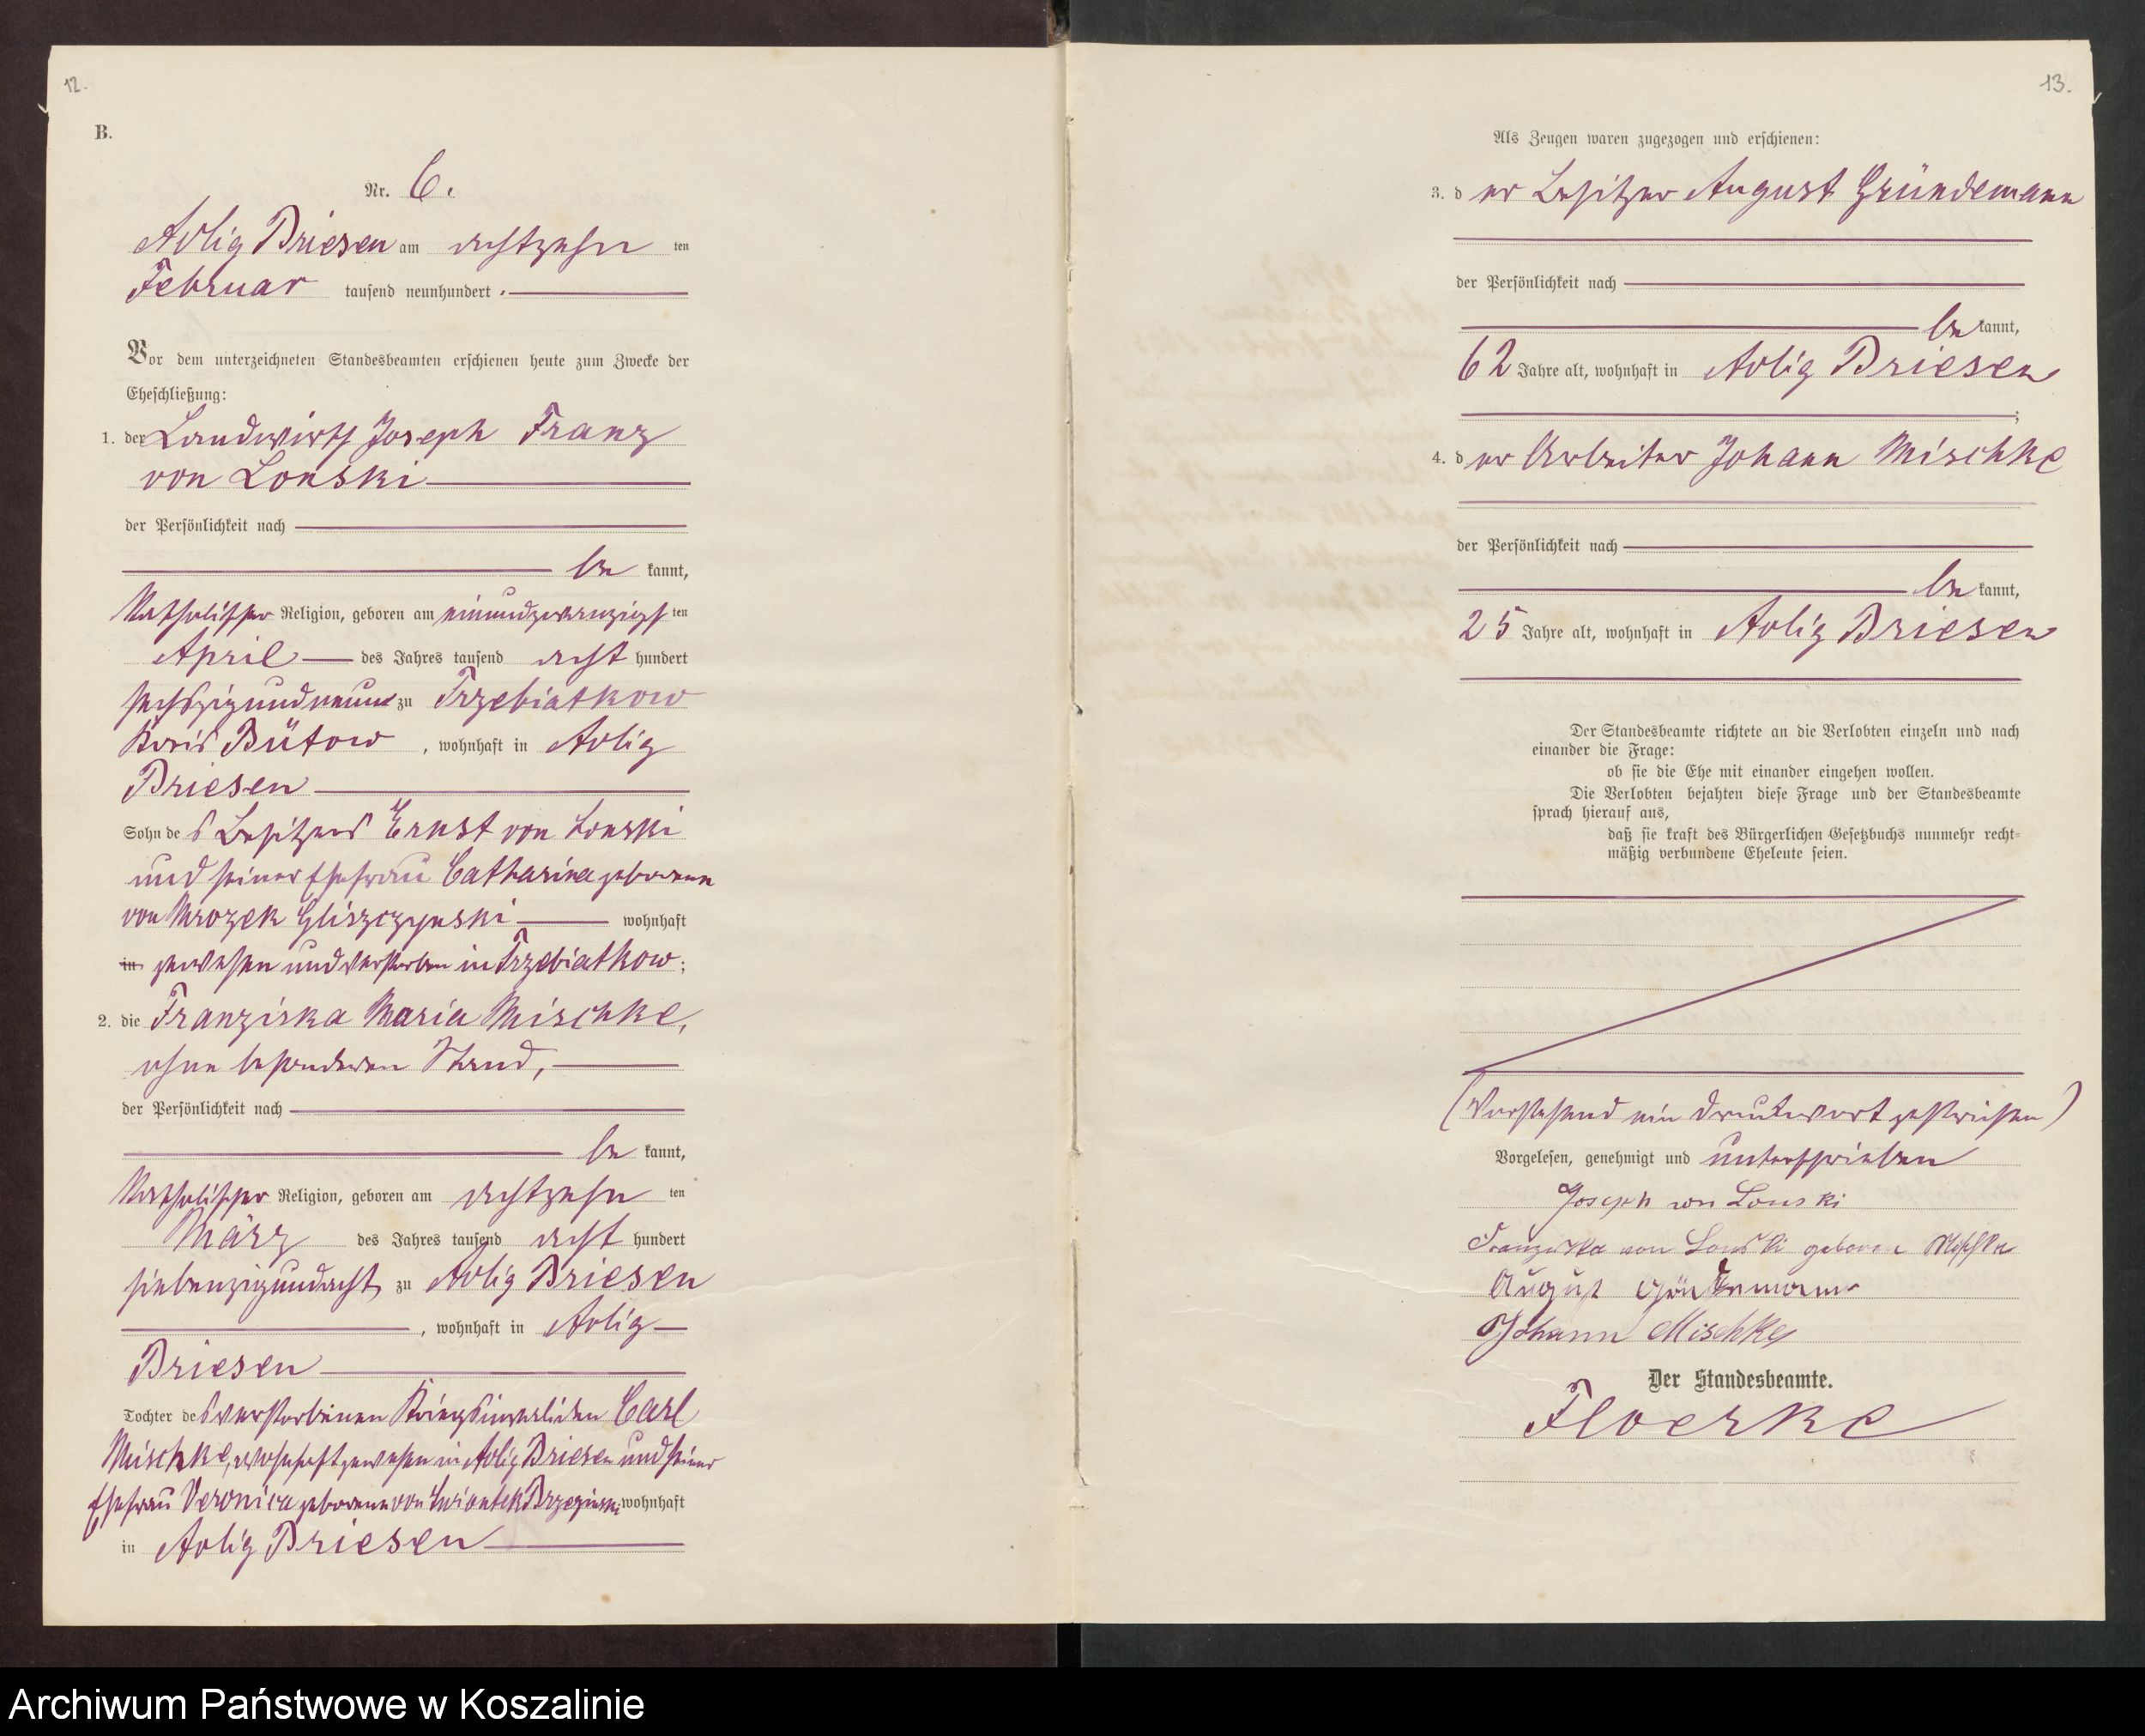 12.
B.
Nr. 6.
Adlig Briesen am achtzehn ten
Februar tausend neunhundert
Vor dem unterzeichneten Standesbeamten erschienen heute zum Zwecke der
Eheschließung:
1. der Landwirth Joseph Franz
von Lonski
der Persönlichkeit nach
be kannt,
katholischer Religion, geboren am einundzwanzigst ten
April des Jahres tausend acht hundert
sechszigundneun zu Trzebiatkow
Kreis Bütow, wohnhaft in Adlig
Briesen
Sohn des Besitzers Ernst von Lonski
und seiner Ehefrau Catharina geborenen
von Mrozek Gliszczynski wohnhaft
in gewesen und verstorben in Trzebiatkow;
2. die Franziska Maria Mischke,
ohne besonderen Stand,
der Persönlichkeit nach
be kannt,
katholischer Religion, geboren am achtzehn ten
März des Jahres tausend acht hundert
siebenzigundacht zu Adlig Briesen
, wohnhaft in Adlig
Briesen
Tochter des verstorbenen Kriegsinvaliden Carl
Mischke, wohnhaft gewesen in Adlig Briesen und seiner
Ehefrau Veronica geborenen von wohnhaft
in Adlig Briesen
13.
Als Zeugen waren zugezogen und erschienen:
3. der Besitzer August Gründemann
der Persönlichkeit nach
be kannt,
62 Jahre alt, wohnhaft in Adlig Briesen
;
4. der Arbeiter Johann Mischke
der Persönlichkeit nach
be kannt,
25 Jahre alt, wohnhaft in Adlig Briesen
Der Standesbeamte richtete an die Verlobten einzeln und nach
einander die Frage:
ob sie die Ehe mit einander eingehen wollen.
Die Verlobten bejahten diese Frage und der Standesbeamte
sprach hierauf aus,
daß sie kraft des Bürgerlichen Gesetzbuchs nunmehr recht-
mäßig verbundene Eheleute seien.
(Vorstehend ein Druckwort gestrichen)
Vorgelesen, genehmigt und unterschrieben
Joseph von Lonski
Franziska von Lonski geboren Mischke
August
Johann Mischke
Der Standesbeamte.
Floerke
Archiwum Państwowe w Koszalinie